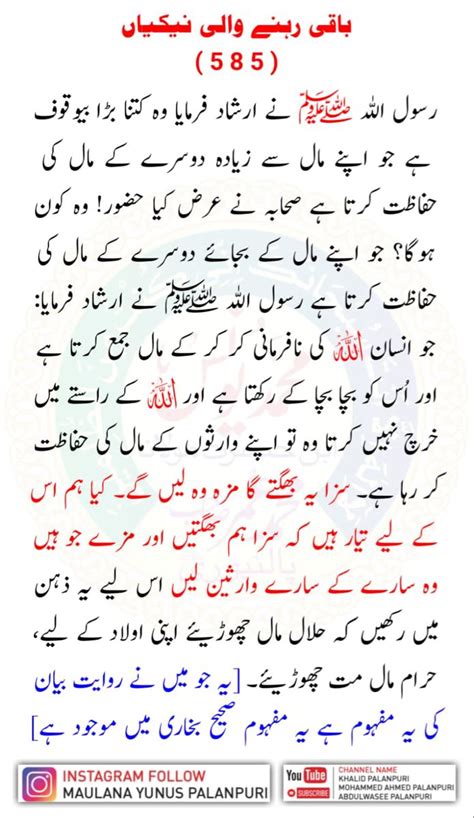 باقی رہنے والی نیکیاں
(585)
رسول اللہ ﷺ نے ارشاد فرمایا وہ کتنا بڑا بیوقوف
ہے جو اپنے مال سے زیادہ دوسرے کے مال کی
حفاظت کرتا ہے صحابہ نے عرض کیا حضور! وہ کون
ہوگا؟ جو اپنے مال کے بجائے دوسرے کے مال کی
حفاظت کرتا ہے رسول اللہ ﷺ نے ارشاد فرمایا:
جو انسان اللہ کی نافرمانی کر کر کے مال جمع کرتا ہے
اور اُس کو بچا بچا کے رکھتا ہے اور اللہ کے راستے میں
خرچ نہیں کرتا وہ تو اپنے وارثوں کے مال کی حفاظت
کر رہا ہے۔ سزا یہ بھگتے گا مزہ وہ لیں گے۔ کیا ہم اس
کے لیے تیار ہیں کہ سزا ہم بھگتیں اور مزے جو ہیں
وہ سارے کے سارے وارثین لیں اس لیے یہ ذہن
میں رکھیں کہ حلال مال چھوڑیئے اپنی اولاد کے لیے،
حرام مال مت چھوڑیئے۔ [یہ جو میں نے روایت بیان
کی یہ مفہوم ہے یہ مفہوم صحیح بخاری میں موجود ہے]
INSTAGRAM FOLLOW
MAULANA YUNUS PALANPURI
You Tube
SUBSCRIBE
CHANNEL NAME
KHALID PALANPURI
MOHAMMED AHMED PALANPURI
ABDULWASEE PALANPURI